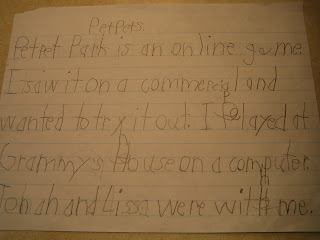 PetPets
Petpet Park is an online game.
I saw it on a commercial and
wanted to try it out. I played at
Grammy's house on a computer.
Johah and Lissa were with me.